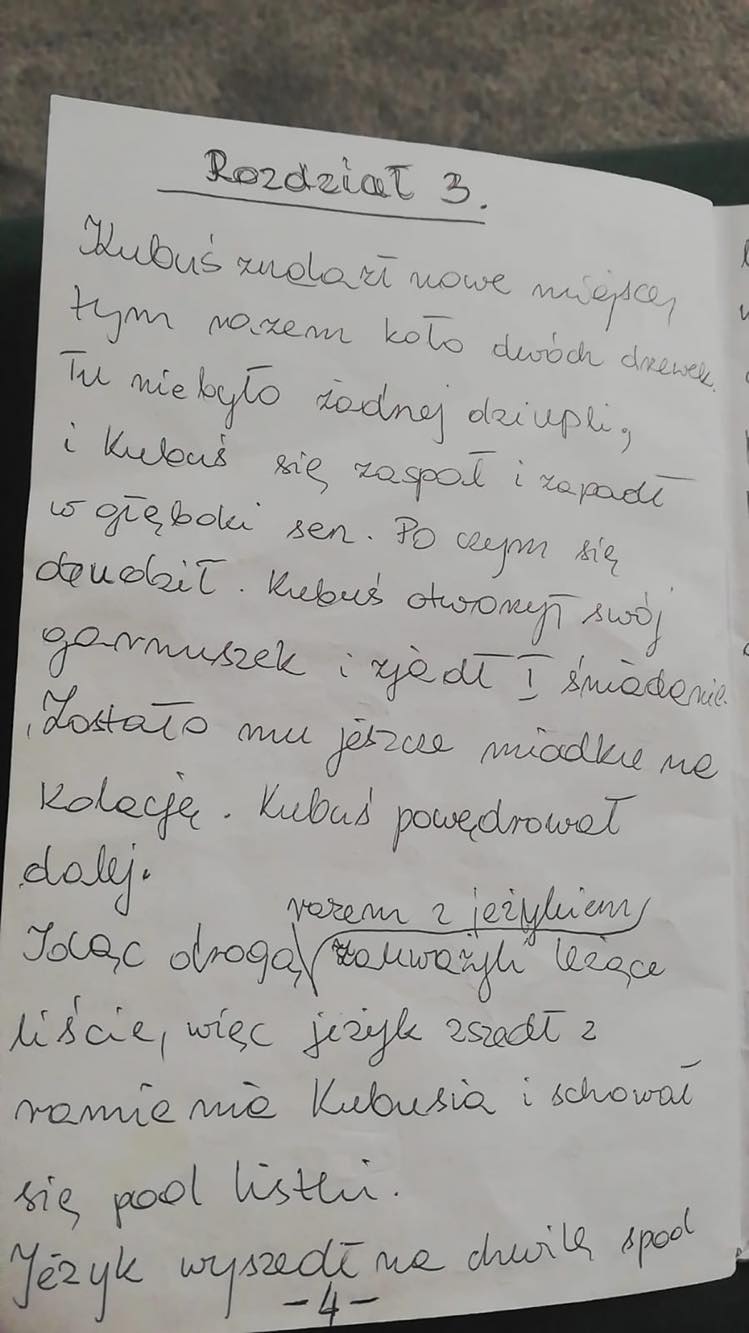 Rozdział 3.
Kubuś znalazł nowe miejsce,
tym razem koło dwóch drzewek.
Tu niebyło żadnej dziupli,
i Kubuś się zaspał i zapadł
w głęboki sen. Po czym się
obudził. Kubuś otworzył swój
garnuszek i zjadł I śniadanie.
Zostało mu jeszcze miodku na
kolację. Kubuś powędrował
dalej.
razem z jeżykiem
Idąc drogą zauważyli leżące
liście, więc jeżyk zszedł z
ramienia Kubusia i schował
się pod listki.
Jeżyk wyszedł na chwilę spod
-4-